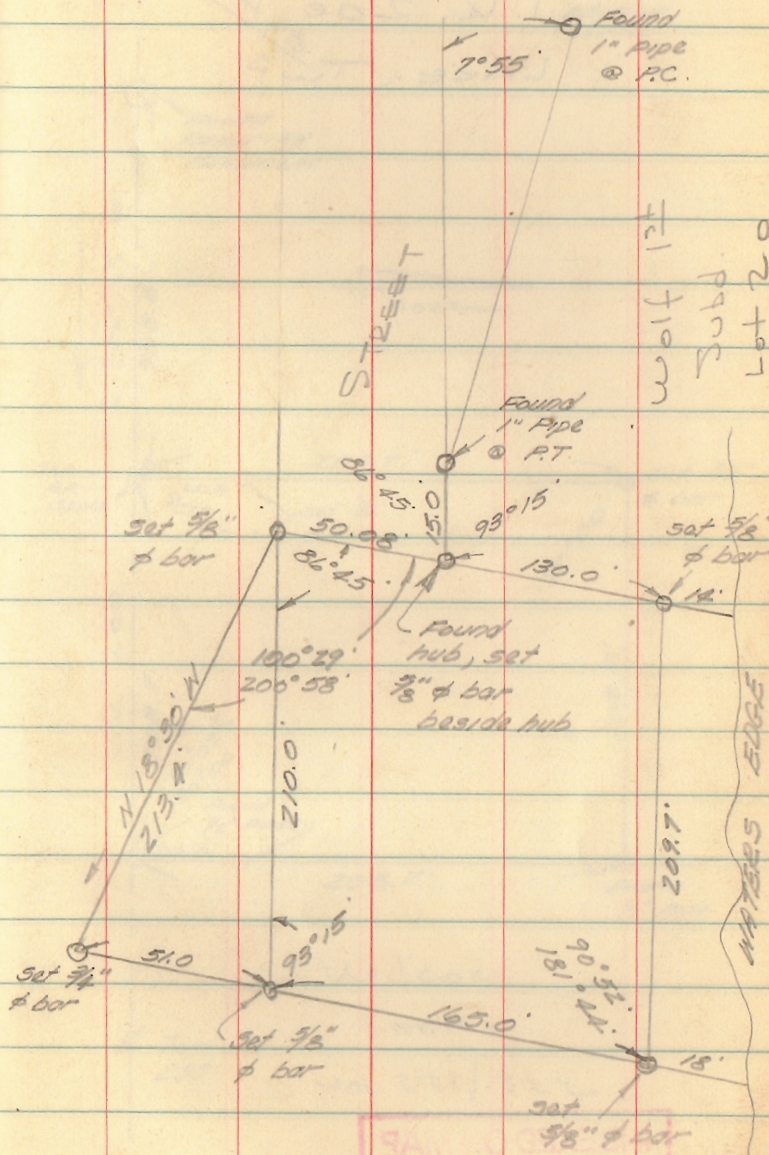 Found
1" Pipe
@ P.C.
7°55'
STREET
Wolf 1st
Subd
Lot 20
Found
1" Pipe
@ P.T.
86°45'
15.0
93°15'
set 5/8"
φ bar
50.08'
86°45'
130.0'
set 5/8"
φ bar
14'
Found
hub, set
5/8" φ bar
beside hub
100°29'
200°58'
N 18°30' W
210.0'
209.7'
WATERS EDGE
51.0
93°15'
set 3/4"
φ bar
set 5/8"
φ bar
165.0'
90°52'
181°44'
18'
set
5/8" φ bar